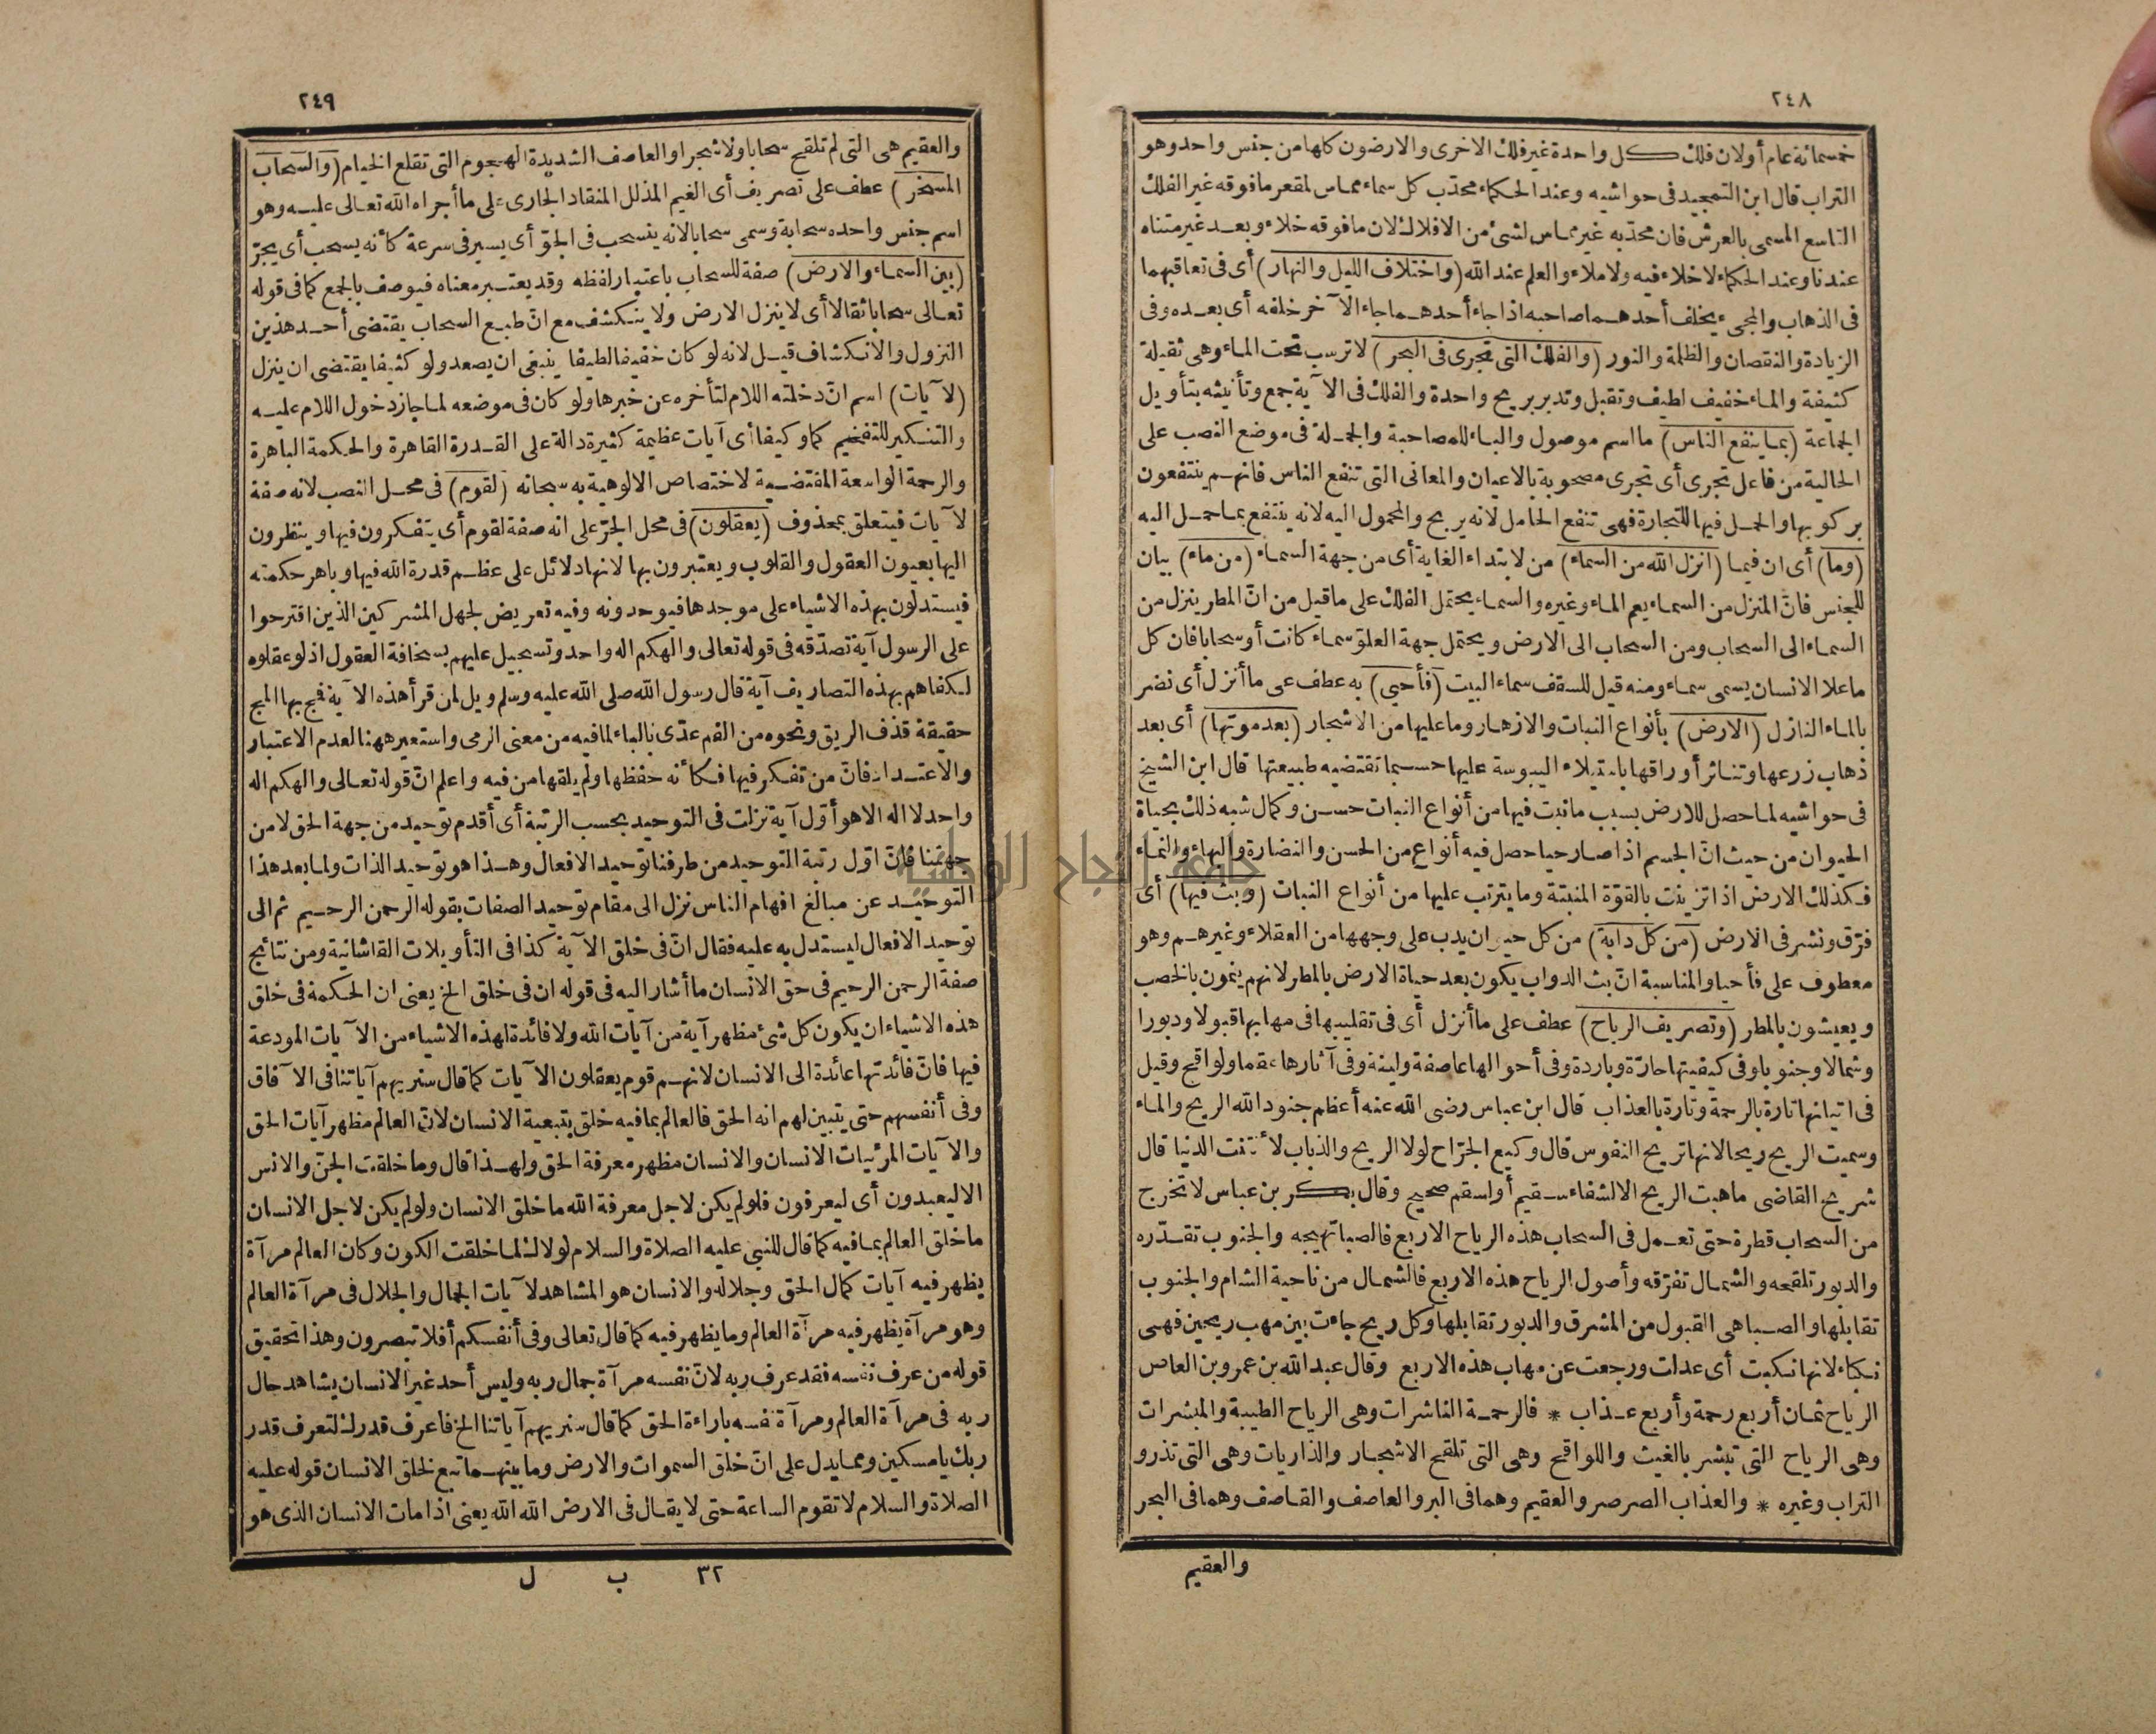 ٢٤٨
خمسمائة عام أو لان فلك كل واحدة غير فلك الاخرى والارضون كلها من جنس واحد وهو
التراب قال ابن التمجيد فى حواشيه وعند الحكماء محدّب كل سماء مماس لمقعر ما فوقه غير الفلك
التاسع المسمى بالعرش فان محدّبه غير مماس لشئ من الافلاك لان ما فوقه خلاء وبعد غير متناه
عندنا وعند الحكماء لا خلاء فيه ولا ملاء والعلم عند الله (واختلاف الليل والنهار) أى فى تعاقبهما
فى الذهاب والمجىء يخلف أحدهما صاحبه اذا جاء أحدهما جاء الآخر خلفه أى بعده وفى
الزيادة والنقصان والظلمة والنور (والفلك التى تجرى فى البحر) لا ترسب تحت الماء وهى ثقيلة
كثيفة والماء خفيف لطيف وتقبل وتدبر بريح واحدة والفلك فى الآية جمع وتأنيثه بتأويل
الجماعة (بما ينفع الناس) ما اسم موصول والباء للمصاحبة والجملة فى موضع النصب على
الحالية من فاعل تجرى أى تجرى مصحوبة بالاعيان والمعانى التى تنفع الناس فانهم ينتفعون
بركوبها والحمل فيها للتجارة فهى تنفع الحامل لانه يربح والمحمول اليه لانه ينتفع بما حمل اليه
(وما) أى ان فيما (انزل الله من السماء) من لابتداء الغاية أى من جهة السماء (من ماء) بيان
للجنس فانّ المنزل من السماء يعم الماء وغيره والسماء يحتمل الفلك على ما قيل من انّ المطر ينزل من
السماء الى السحاب ومن السحاب الى الارض ويحتمل جهة العلوّ سماء كانت أو سحابا فان كل
ما علا الانسان يسمى سماء ومنه قيل للسقف سماء البيت (فأحيى) به عطف على ما أنزل أى نضر
بالماء النازل (الارض) بأنواع النبات والازهار وما عليها من الاشجار (بعد موتها) أى بعد
ذهاب زرعها وتناثر أوراقها باستيلاء اليبوسة عليها حسبما تقتضيه طبيعتها قال ابن الشيخ
فى حواشيه لما حصل للارض بسبب ما نبت فيها من أنواع النبات حسن وكمال شبه ذلك بحياة
الحيوان من حيث انّ الجسم اذا صار حيا حصل فيه أنواع من الحسن والنضارة والبهاء والنماء
فكذلك الارض اذا تزينت بالقوّة المنبتة وما يترتب عليها من أنواع النبات (وبث فيها) أى
فرّق ونشر فى الارض (من كل دابة) من كل حيوان يدب على وجهها من العقلاء وغيرهم وهو
معطوف على فأحيا والمناسبة انّ بث الدواب يكون بعد حياة الارض بالمطر لانهم ينمون بالخصب
ويعيشون بالمطر (وتصريف الرياح) عطف على ما أنزل أى فى تقليبها فى مهابها قبولا ودبورا
وشمالا وجنوبا وفى كيفيتها حارّة وباردة وفى أحوالها عاصفة ولينة وفى آثارها عقما ولواقح وقيل
فى اتيانها تارة بالرحمة وتارة بالعذاب قال ابن عباس رضى الله عنه أعظم جنود الله الريح والماء
وسميت الريح ريحا لانها تريح النفوس قال وكيع الجرّاح لولا الريح والذباب لأنتنت الدنيا قال
شريح القاضى ما هبت الريح الا لشفاء سقيم أو لسقم صحيح وقال بكر بن عباس لا تخرج
من السحاب قطرة حتى تعمل فى السحاب هذه الرياح الاربع فالصبا تهيجه والجنوب تقدّره
والدبور تلقحه والشمال تفرّقه وأصول الرياح هذه الاربع فالشمال من ناحية الشام والجنوب
تقابلها والصبا هى القبول من المشرق والدبور تقابلها وكل ريح جاءت بين مهب ريحين فهى
نكباء لانها نكبت أى عدلت ورجعت عن مهاب هذه الاربع وقال عبد الله بن عمرو بن العاص
الرياح ثمان أربع رحمة وأربع عذاب * فالرحمة الناشرات وهى الرياح الطيبة والمبشرات
وهى الرياح التى تبشر بالغيث واللواقح وهى التى تلقح الاشجار والذاريات وهى التى تذرو
التراب وغيره * والعذاب الصرصر والعقيم وهما فى البر والعاصف والقاصف وهما فى البحر
والعقيم
٢٤٩
والعقيم هى التى لم تلقح سحابا ولا شجرا والعاصف الشديدة الهجوم التى تقلع الخيام (والسحاب
المسخر) عطف على تصريف أى الغيم المذلل المنقاد الجارى على ما أجراه الله تعالى عليه وهو
اسم جنس واحده سحابة وسمى سحابا لانه ينسحب فى الجوّ أى يسير فى سرعة كأنه يسحب أى يجرّ
(بين السماء والارض) صفة للسحاب باعتبار لفظه وقد يعتبر معناه فيوصف بالجمع كما فى قوله
تعالى سحابا ثقالا أى لا ينزل الارض ولا ينكشف مع انّ طبع السحاب يقتضى أحد هذين
النزول والانكشاف قيل لانه لو كان خفيفا لطيفا ينبغى ان يصعد ولو كثيفا يقتضى ان ينزل
(لآيات) اسم انّ دخلته اللام لتأخره عن خبرها ولو كان فى موضعه لما جاز دخول اللام عليه
والتنكير للتفخيم كما وكيفا أى آيات عظيمة كثيرة دالة على القدرة القاهرة والحكمة الباهرة
والرحمة الواسعة المقتضية لاختصاص الالوهية به سبحانه (لقوم) فى محل النصب لانه صفة
لآيات فيتعلق بمحذوف (يعقلون) فى محل الجرّ على انه صفة لقوم أى يتفكرون فيها وينظرون
اليها بعيون العقول والقلوب ويعتبرون بها لانها دلائل على عظم قدرة الله فيها وباهر حكمته
فيستدلون بهذه الاشياء على موجدها فيوحدونه وفيه تعريض لجهل المشركين الذين اقترحوا
على الرسول آية تصدّقه فى قوله تعالى والهكم اله واحد وتسجيل عليهم بسخافة العقول اذ لو عقلوه
لكفاهم بهذه التصاريف آية قال رسول الله صلى الله عليه وسلم ويل لمن قرأ هذه الآية فمج بها المج
حقيقة قذف الريق ونحوه من الفم عدّى بالباء لما فيه من معنى الرمى واستعير ههنا لعدم الاعتبار
والاعتداد فانّ من تفكر فيها فكأنه حفظها ولم يلقها من فيه واعلم انّ قوله تعالى والهكم اله
واحد لا اله الا هو أوّل آية نزلت فى التوحيد بحسب الرتبة أى أقدم توحيد من جهة الحق لا من
جهتنا فانّ اوّل رتبة التوحيد من طرفنا توحيد الافعال وهذا هو توحيد الذات ولما بعد هذا
التوحيد عن مبالغ افهام الناس نزل الى مقام توحيد الصفات بقوله الرحمن الرحيم ثم الى
توحيد الافعال ليستدل به عليه فقال انّ فى خلق الآية كذا فى التأويلات القاشانية ومن نتائج
صفة الرحمن الرحيم فى حق الانسان ما أشار اليه فى قوله ان فى خلق الخ يعنى ان الحكمة فى خلق
هذه الاشياء ان يكون كل شئ مظهر آية من آيات الله ولا فائدة لهذه الاشياء من الآيات المودعة
فيها فانّ فائدتها عائدة الى الانسان لانهم قوم يعقلون الآيات كما قال سنريهم آياتنا فى الآفاق
وفى أنفسهم حتى يتبين لهم انه الحق فالعالم بما فيه خلق بتبعية الانسان لانّ العالم مظهر آيات الحق
والآيات المرئيات الانسان والانسان مظهر معرفة الحق ولهذا قال وما خلقت الجنّ والانس
الا ليعبدون أى ليعرفون فلو لم يكن لاجل معرفة الله ما خلق الانسان ولو لم يكن لاجل الانسان
ما خلق العالم بما فيه كما قال للنبي عليه الصلاة والسلام لولاك لما خلقت الكون وكان العالم مرآة
يظهر فيه آيات كمال الحق وجلاله والانسان هو المشاهد لآيات الجمال والجلال فى مرآة العالم
وهو مرآة يظهر فيه مرآة العالم وما يظهر فيه كما قال تعالى وفى أنفسكم أفلا تبصرون وهذا تحقيق
قوله من عرف نفسه فقد عرف ربه لانّ نفسه مرآة جمال ربه وليس أحد غير الانسان يشاهد جمال
ربه فى مرآة العالم ومرآة نفسه باراءة الحق كما قال سنريهم آياتنا الخ فاعرف قدرك لتعرف قدر
ربك يا مسكين ومما يدل على انّ خلق السموات والارض وما بينهما تبع لخلق الانسان قوله عليه
الصلاة والسلام لا تقوم الساعة حتى لا يقال فى الارض الله الله يعنى اذا مات الانسان الذى هو
٣٢ ب ل
جامعة النجاح الوطنية